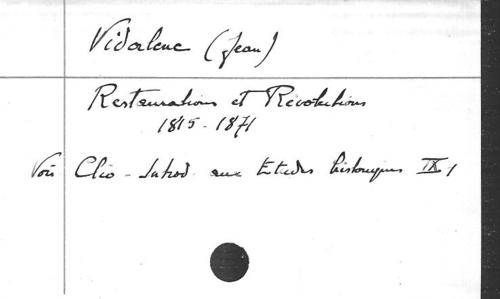 Vidalenc (Jean)
Restaurations et Révolutions
1815-1871
Voir Clio - Introd. aux Etudes historiques IX 1